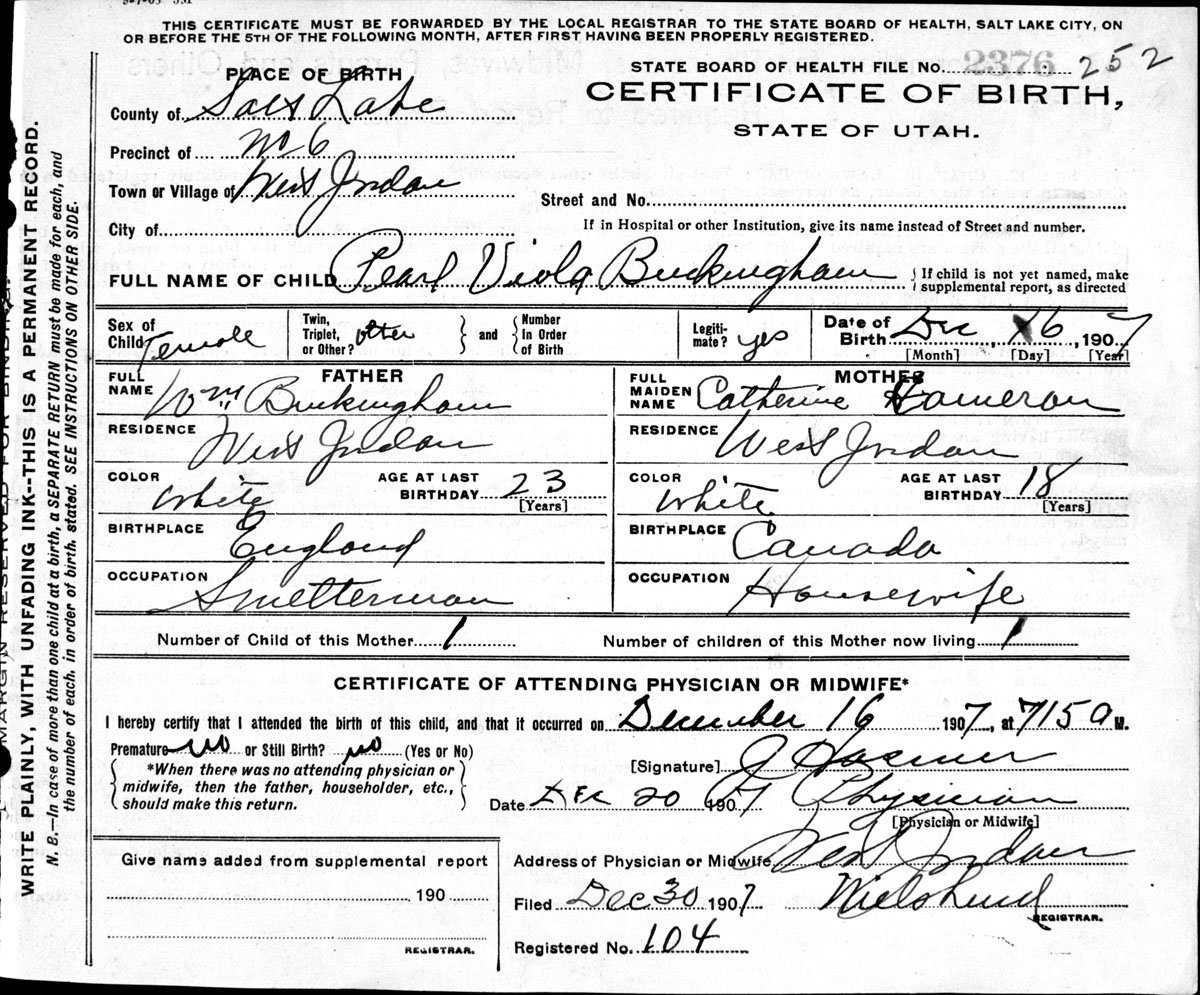 THIS CERTIFICATE MUST BE FORWARDED BY THE LOCAL REGISTRAR TO THE STATE BOARD OF HEALTH, SALT LAKE CITY, ON
OR BEFORE THE 5TH OF THE FOLLOWING MONTH, AFTER FIRST HAVING BEEN PROPERLY REGISTERED.
PLACE OF BIRTH
STATE BOARD OF HEALTH FILE No. 2376 252
CERTIFICATE OF BIRTH,
STATE OF UTAH.
County of Salt Lake
Precinct of No 6
Town or Village of West Jordan
Street and No.
City of
If in Hospital or other Institution, give its name instead of Street and number.
FULL NAME OF CHILD Pearl Viola Buckingham { If child is not yet named, make
supplemental report, as directed
Sex of Child Female
Twin, Triplet, or Other? other } and { Number in Order of Birth
Legitimate? yes
Date of Birth Dec 16, 1907
[Month] [Day] [Year]
FATHER
FULL NAME Wm Buckingham
RESIDENCE West Jordan
COLOR White
AGE AT LAST BIRTHDAY 23 [Years]
BIRTHPLACE England
OCCUPATION Smelterman
MOTHER
FULL MAIDEN NAME Catherine Hameron
RESIDENCE West Jordan
COLOR White
AGE AT LAST BIRTHDAY 18 [Years]
BIRTHPLACE Canada
OCCUPATION Housewife
Number of Child of this Mother 1
Number of children of this Mother now living 1
CERTIFICATE OF ATTENDING PHYSICIAN OR MIDWIFE*
I hereby certify that I attended the birth of this child, and that it occurred on December 16 1907, at 715 a M.
Premature no or Still Birth? no (Yes or No)
[Signature]
{ *When there was no attending physician or
midwife, then the father, householder, etc.,
should make this return. }
Date Dec 20 1907 Physician
[Physician or Midwife]
Give name added from supplemental report
190
REGISTRAR.
Address of Physician or Midwife West Jordan
Filed Dec 30 1907 Niels Lund
REGISTRAR.
Registered No. 104
MARGIN RESERVED FOR BINDING.
WRITE PLAINLY, WITH UNFADING INK--THIS IS A PERMANENT RECORD.
N. B.—In case of more than one child at a birth, a SEPARATE RETURN must be made for each, and
the number of each, in order of birth, stated. SEE INSTRUCTIONS ON OTHER SIDE.